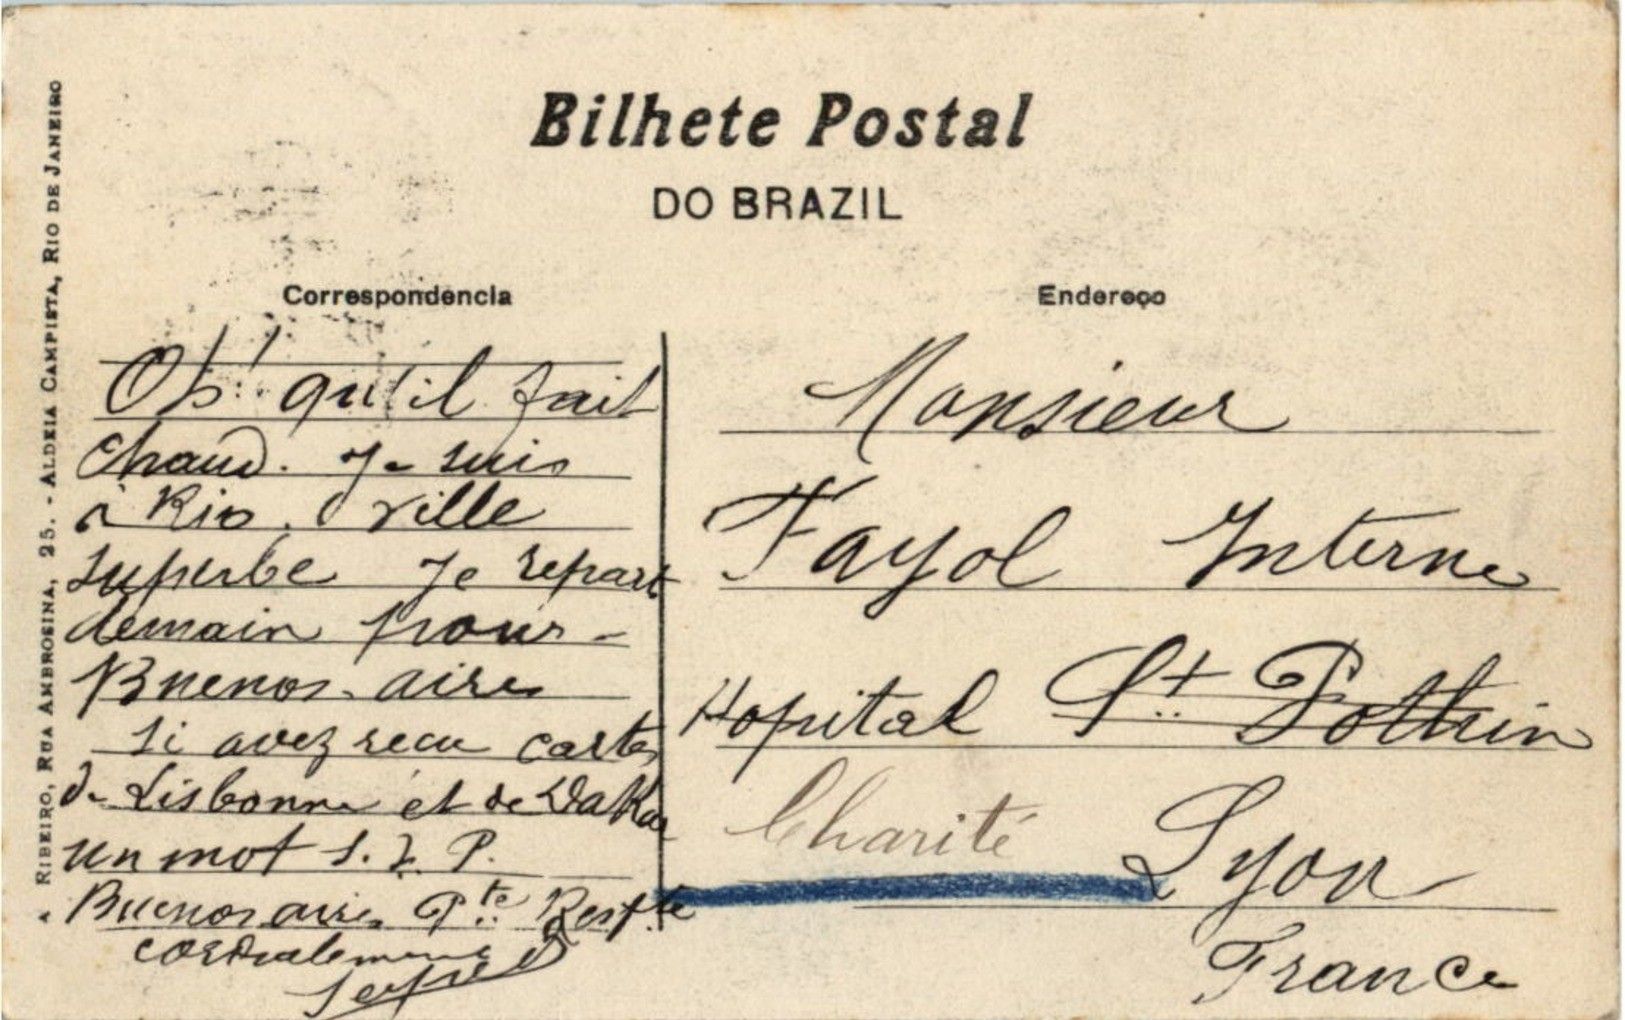 Bilhete Postal
DO BRAZIL
Correspondencia
Oh! qu'il fait
chaud. Je suis
à Rio. ville
superbe Je repart
demain pour
Buenos-aires
Si avez recu cartes
de Lisbonne et de Dakar
un mot S. V. P.
Buenos aires Pte Restte
cordialement
Endereço
Monsieur
Fayol Interne
Hopital St Pothin
Charité Lyon
France
A RIBEIRO, RUA AMBROSINA, 25. - ALDEIA CAMPISTA, RIO DE JANEIRO